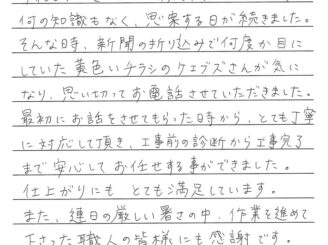 何の知識もなく、思案する日が続きました。
そんな時、新聞の折り込みで何度か目に
していた黄色いチラシのケェブズさんが気に
なり、思い切ってお電話させていただきました。
最初にお話をさせてもらった時から、とても丁寧
に対応して頂き、工事前の診断から工事完了
まで安心してお任せする事ができました。
仕上がりにも とても満足しています。
また、連日の厳しい暑さの中、作業を進めて
下さった職人の皆様にも感謝です。